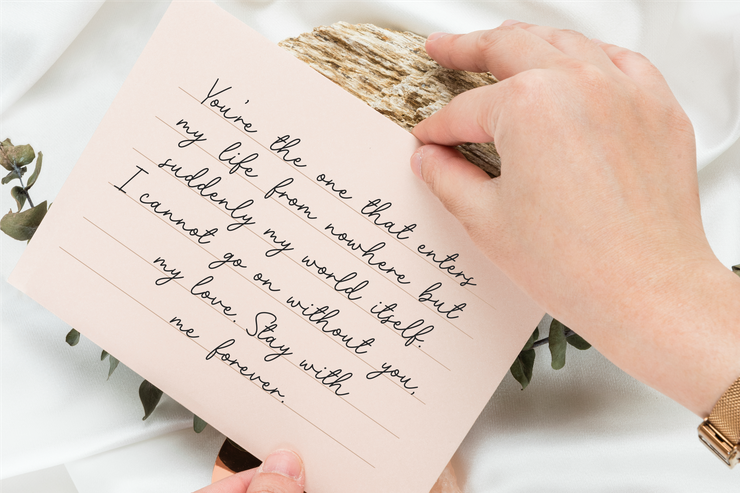 You're the one that enters
my life from nowhere but
suddenly my world itself.
I cannot go on without you,
my love. Stay with
me forever.